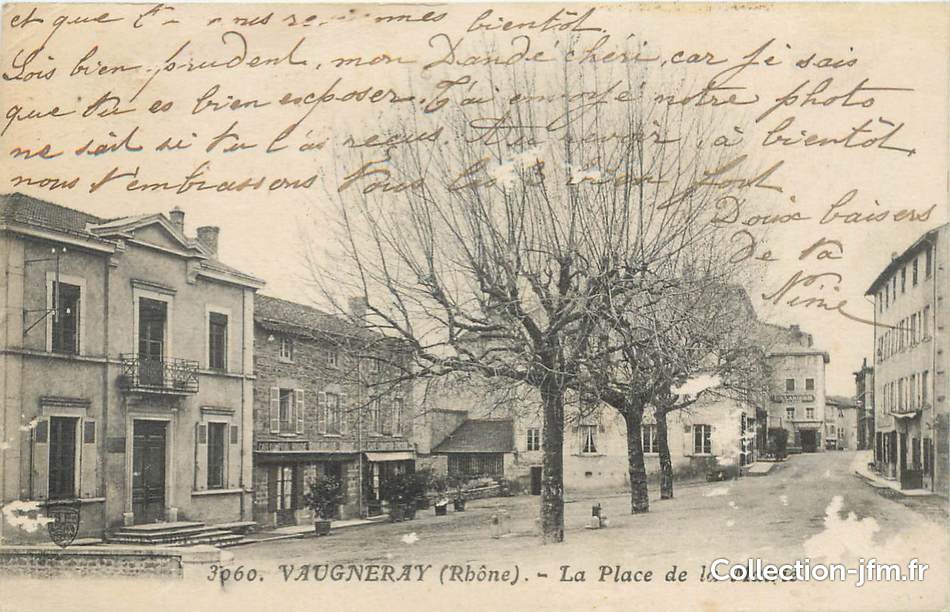 et que nous bientôt.
Sois bien prudent, mon Dandé chéri, car je sais
que tu es bien exposer. J'ai envoyé notre photo
ne sait si tu l'as reçus. Au revoir, à bientôt,
nous t'embrassons tous les 3 bien fort
Doux baisers
de ta
Nine
3060. VAUGNERAY (Rhône). - La Place de la
Collection-jfm.fr